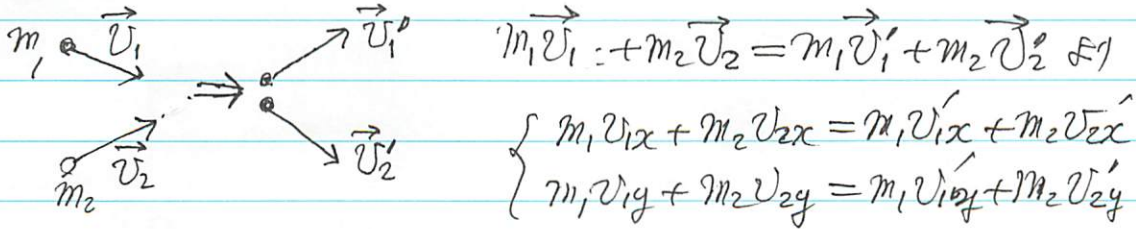 m₁ v⃗₁ v⃗₁′ m₁v⃗₁ + m₂v⃗₂ = m₁v⃗₁′ + m₂v⃗₂′ より
m₂ v⃗₂ ⇒ v⃗₂′
m₁v₁x + m₂v₂x = m₁v₁′x + m₂v₂x′
m₁v₁y + m₂v₂y = m₁v₁′y + m₂v₂′y